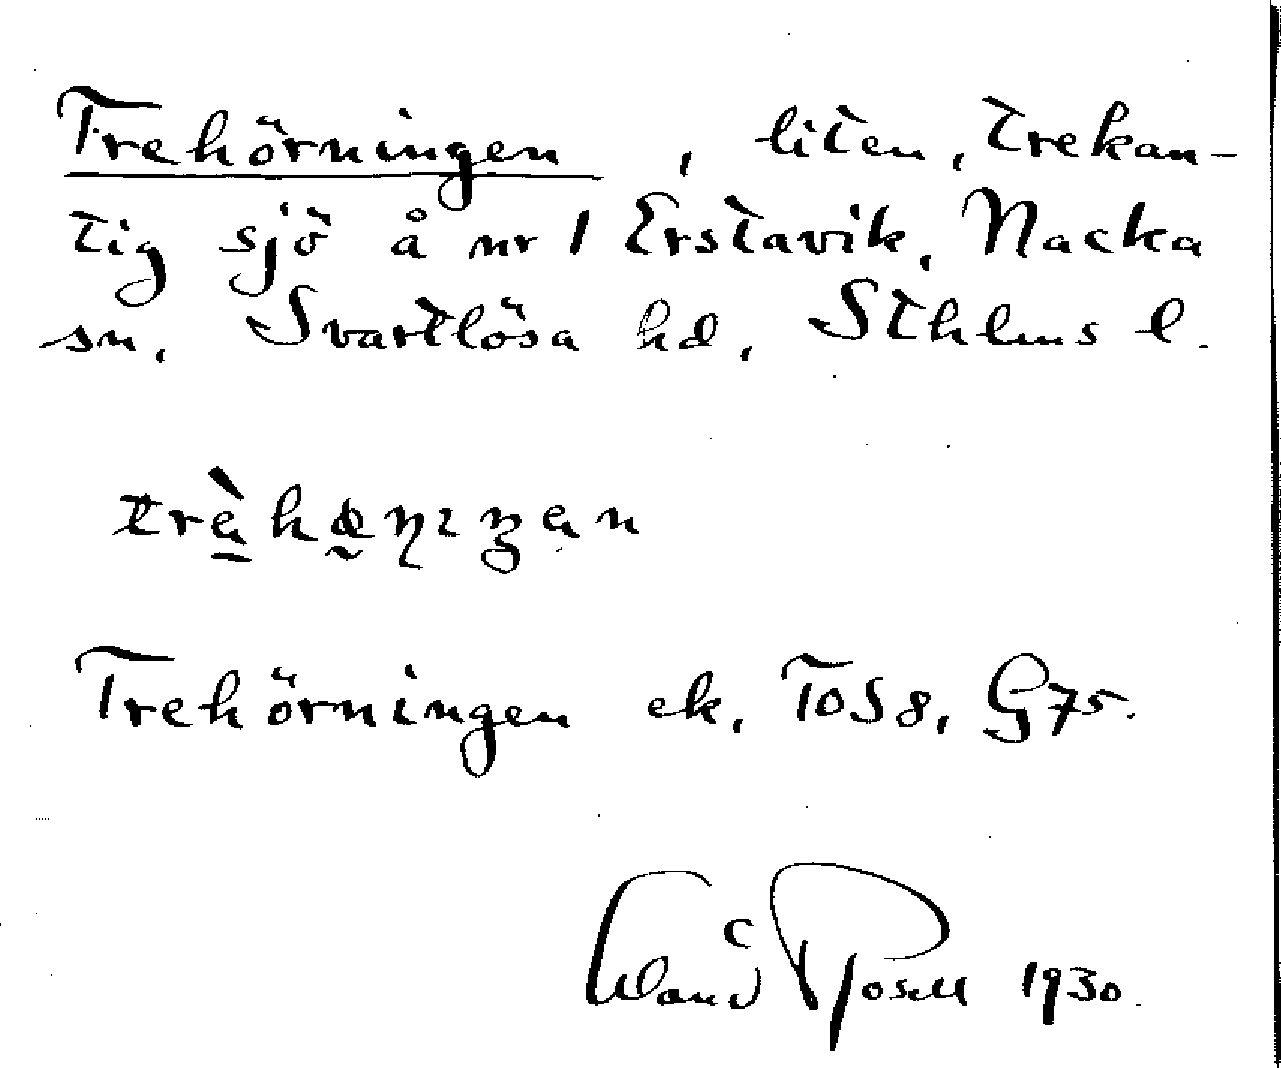 Trehörningen, liten, trekan-
tig sjö å nr 1 Erstavik, Nacka
sn, Svartlösa hd, Sthlms l.
Trehörningen ek. ToS8, G75.
Erland Rosell 1930.